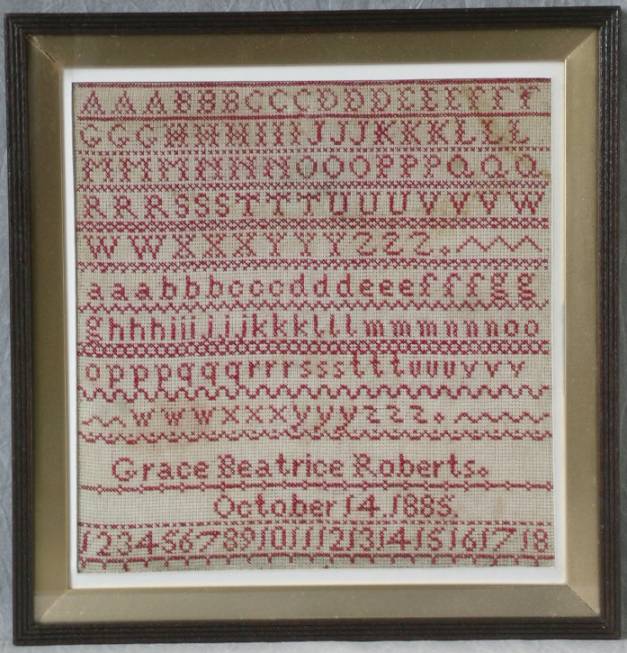 AAABBBCCCDDDEEEFFF
GGGHHHIIIJJJKKKLLL
MMMMNNNNOOOPPPQQQ
RRRSSSTTTUUUVVVW
WWXXXYYYZZZ.
aaabbbcccdddeeefffgg
ghhhiiijjjkkklllmmmnnnoo
opppqqqrrrssstttuuuvvv
wwwxxxyyyzzz.
Grace Beatrice Roberts.
October 14. 1885.
123456789101112131415161718